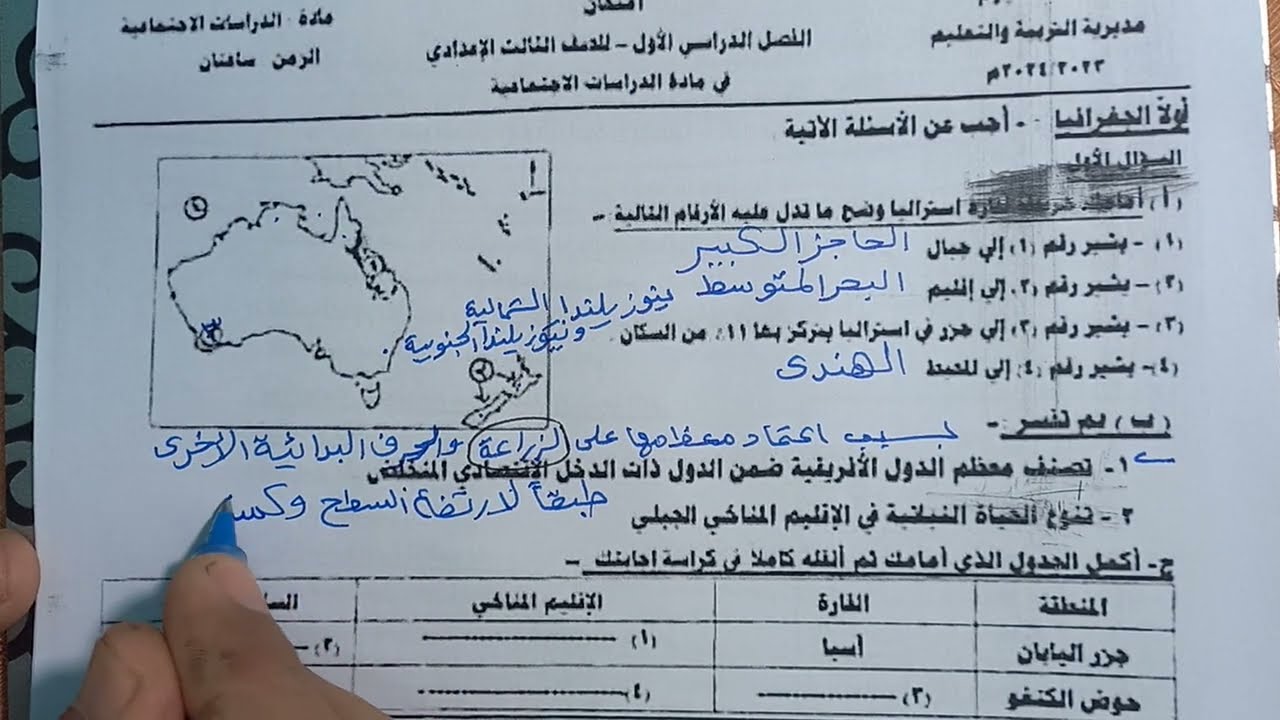 امتحان
مديرية التربية والتعليم
٢٠٢٤/٢٠٢٣م
الفصل الدراسي الأول - للصف الثالث الإعدادي
في مادة الدراسات الاجتماعية
مادة : الدراسات الاجتماعية
الزمن ساعتان
أولاً الجغرافيا - أجب عن الأسئلة الآتية
السؤال الأول
(أ) أمامك قارة استراليا وضح ما تدل عليه الأرقام التالية -
(١) - يشير رقم (١) إلي جبال الحاجز الكبير
(٢) - يشير رقم (٢) إلي إقليم البحر المتوسط
نيوزيلندا الشمالية
ونيوزيلندا الجنوبية
(٣) - يشير رقم (٣) إلي جزر في استراليا يتركز بها ١١٪ من السكان
(٤) - يشير رقم (٤) إلي المحيط الهندى
(ب) بم تفسر -
بسبب اعتماد معظمها على الزراعة والحرف البدائية الأخرى
١- تصنف معظم الدول الأفريقية ضمن الدول ذات الدخل الاقتصادي المنخفض
طبقاً لارتفاع السطح وكمية
٢- تنوع الحياة النباتية في الإقليم المناخي الجبلي
ج- أكمل الجدول الذي أمامك ثم أنقله كاملا في كراسة إجابتك -
المنطقة القارة الإقليم المناخي
جزر اليابان أسيا (١) (٢)
حوض الكنغو (٣) (٤)